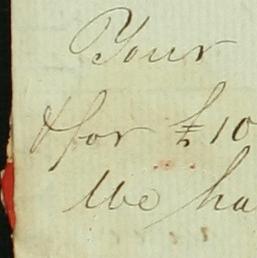 Your
& for £10
We ha